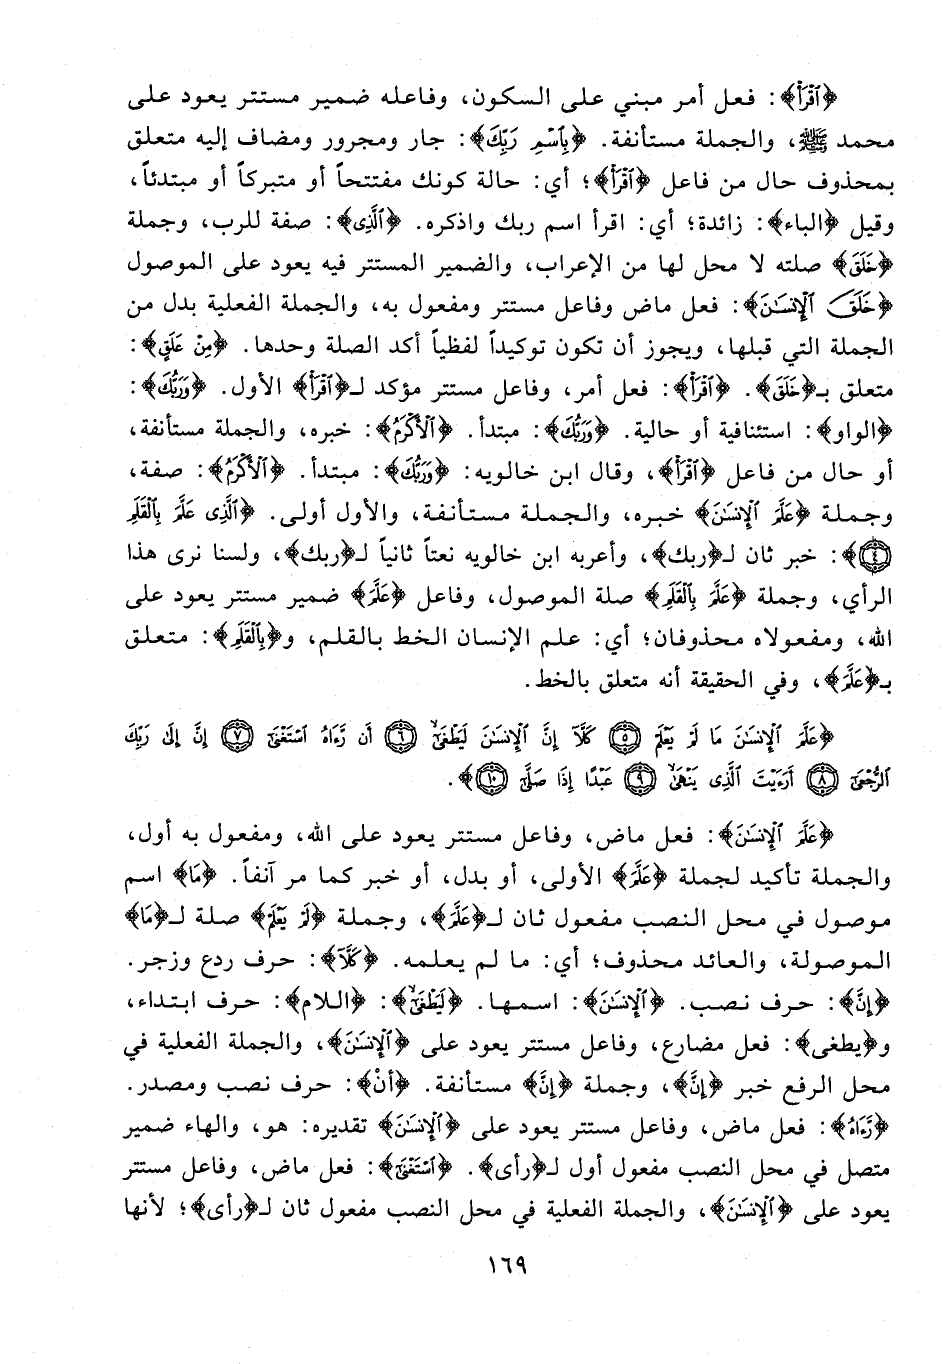 ﴿ٱقْرَأْ﴾: فعل أمر مبني على السكون، وفاعله ضمير مستتر يعود على
محمد ﷺ، والجملة مستأنفة. ﴿بِٱسْمِ رَبِّكَ﴾: جار ومجرور ومضاف إليه متعلق
بمحذوف حال من فاعل ﴿ٱقْرَأْ﴾؛ أي: حالة كونك مفتتحاً أو متبركاً أو مبتدئاً،
وقيل ﴿الباء﴾: زائدة؛ أي: اقرأ اسم ربك واذكره. ﴿ٱلَّذِى﴾: صفة للرب، وجملة
﴿خَلَقَ﴾ صلته لا محل لها من الإعراب، والضمير المستتر فيه يعود على الموصول
﴿خَلَقَ ٱلْإِنسَٰنَ﴾: فعل ماض وفاعل مستتر ومفعول به، والجملة الفعلية بدل من
الجملة التي قبلها، ويجوز أن تكون توكيداً لفظياً أكد الصلة وحدها. ﴿مِنْ عَلَقٍ﴾:
متعلق بـ﴿خَلَقَ﴾. ﴿ٱقْرَأْ﴾: فعل أمر، وفاعل مستتر مؤكد لـ﴿ٱقْرَأْ﴾ الأول. ﴿وَرَبُّكَ﴾:
﴿الواو﴾: استئنافية أو حالية. ﴿وَرَبُّكَ﴾: مبتدأ. ﴿ٱلْأَكْرَمُ﴾: خبره، والجملة مستأنفة،
أو حال من فاعل ﴿ٱقْرَأْ﴾، وقال ابن خالويه: ﴿وَرَبُّكَ﴾: مبتدأ. ﴿ٱلْأَكْرَمُ﴾: صفة،
وجملة ﴿عَلَّمَ ٱلْإِنسَٰنَ﴾ خبره، والجملة مستأنفة، والأول أولى. ﴿ٱلَّذِى عَلَّمَ بِٱلْقَلَمِ
٤﴾: خبر ثان لـ﴿ربك﴾، وأعربه ابن خالويه نعتاً ثانياً لـ﴿ربك﴾، ولسنا نرى هذا
الرأي، وجملة ﴿عَلَّمَ بِٱلْقَلَمِ﴾ صلة الموصول، وفاعل ﴿عَلَّمَ﴾ ضمير مستتر يعود على
الله، ومفعولاه محذوفان؛ أي: علم الإنسان الخط بالقلم، و﴿بِٱلْقَلَمِ﴾: متعلق
بـ﴿عَلَّمَ﴾، وفي الحقيقة أنه متعلق بالخط.
﴿عَلَّمَ ٱلْإِنسَٰنَ مَا لَمْ يَعْلَمْ ٥ كَلَّآ إِنَّ ٱلْإِنسَٰنَ لَيَطْغَىٰٓ ٦ أَن رَّءَاهُ ٱسْتَغْنَىٰٓ ٧ إِنَّ إِلَىٰ رَبِّكَ
ٱلرُّجْعَىٰٓ ٨ أَرَءَيْتَ ٱلَّذِى يَنْهَىٰ ٩ عَبْدًا إِذَا صَلَّىٰٓ ١٠﴾.
﴿عَلَّمَ ٱلْإِنسَٰنَ﴾: فعل ماض، وفاعل مستتر يعود على الله، ومفعول به أول،
والجملة تأكيد لجملة ﴿عَلَّمَ﴾ الأولى، أو بدل، أو خبر كما مر آنفاً. ﴿مَا﴾ اسم
موصول في محل النصب مفعول ثان لـ﴿عَلَّمَ﴾، وجملة ﴿لَمْ يَعْلَمْ﴾ صلة لـ﴿مَا﴾
الموصولة، والعائد محذوف؛ أي: ما لم يعلمه. ﴿كَلَّآ﴾: حرف ردع وزجر.
﴿إِنَّ﴾: حرف نصب. ﴿ٱلْإِنسَٰنَ﴾: اسمها. ﴿لَيَطْغَىٰٓ﴾: ﴿اللام﴾: حرف ابتداء،
و﴿يطغى﴾: فعل مضارع، وفاعل مستتر يعود على ﴿ٱلْإِنسَٰنَ﴾، والجملة الفعلية في
محل الرفع خبر ﴿إِنَّ﴾، وجملة ﴿إِنَّ﴾ مستأنفة. ﴿أَنْ﴾: حرف نصب ومصدر.
﴿رَّءَاهُ﴾: فعل ماض، وفاعل مستتر يعود على ﴿ٱلْإِنسَٰنَ﴾ تقديره: هو، والهاء ضمير
متصل في محل النصب مفعول أول لـ﴿رأى﴾. ﴿ٱسْتَغْنَىٰٓ﴾: فعل ماض، وفاعل مستتر
يعود على ﴿ٱلْإِنسَٰنَ﴾، والجملة الفعلية في محل النصب مفعول ثان لـ﴿رأى﴾؛ لأنها
١٦٩